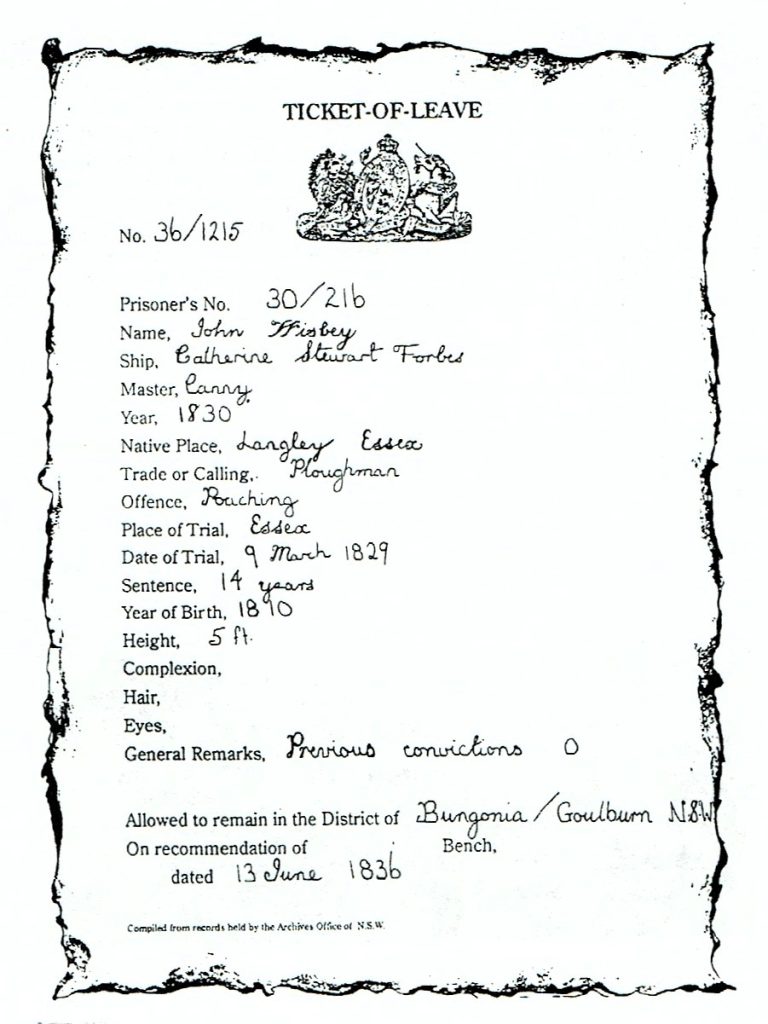 TICKET-OF-LEAVE
No. 36/1215
Prisoner's No. 30/216
Name, John Wisbey
Ship, Catherine Stewart Forbes
Master, Canny
Year, 1830
Native Place, Langley Essex
Trade or Calling,. Ploughman
Offence, Poaching
Place of Trial, Essex
Date of Trial, 9 March 1829
Sentence, 14 years
Year of Birth, 1810
Height, 5 ft.
Complexion,
Hair,
Eyes,
General Remarks, Previous convictions 0
Allowed to remain in the District of Bungonia/Goulburn N.S.W
On recommendation of Bench,
dated 13 June 1836
Compiled from records held by the Archives Office of N.S.W.